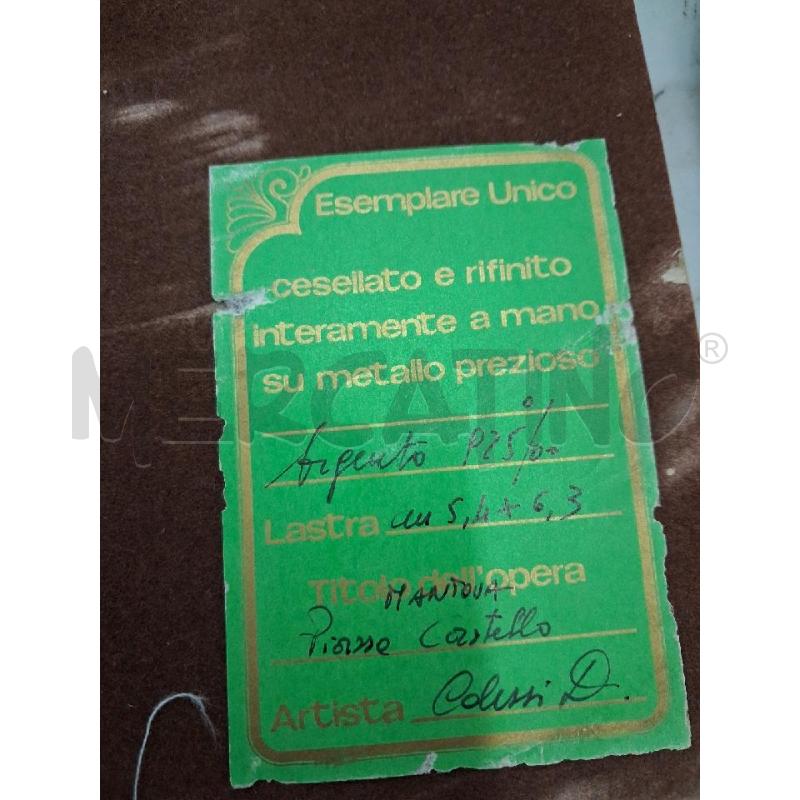 Esemplare Unico
cesellato e rifinito
interamente a mano
su metallo prezioso
Argento 925‰
Lastra cm 5,4 x 6,3
Titolo dell'opera
MANTOVA
Piazza Castello
Artista D.
MERCATINO®